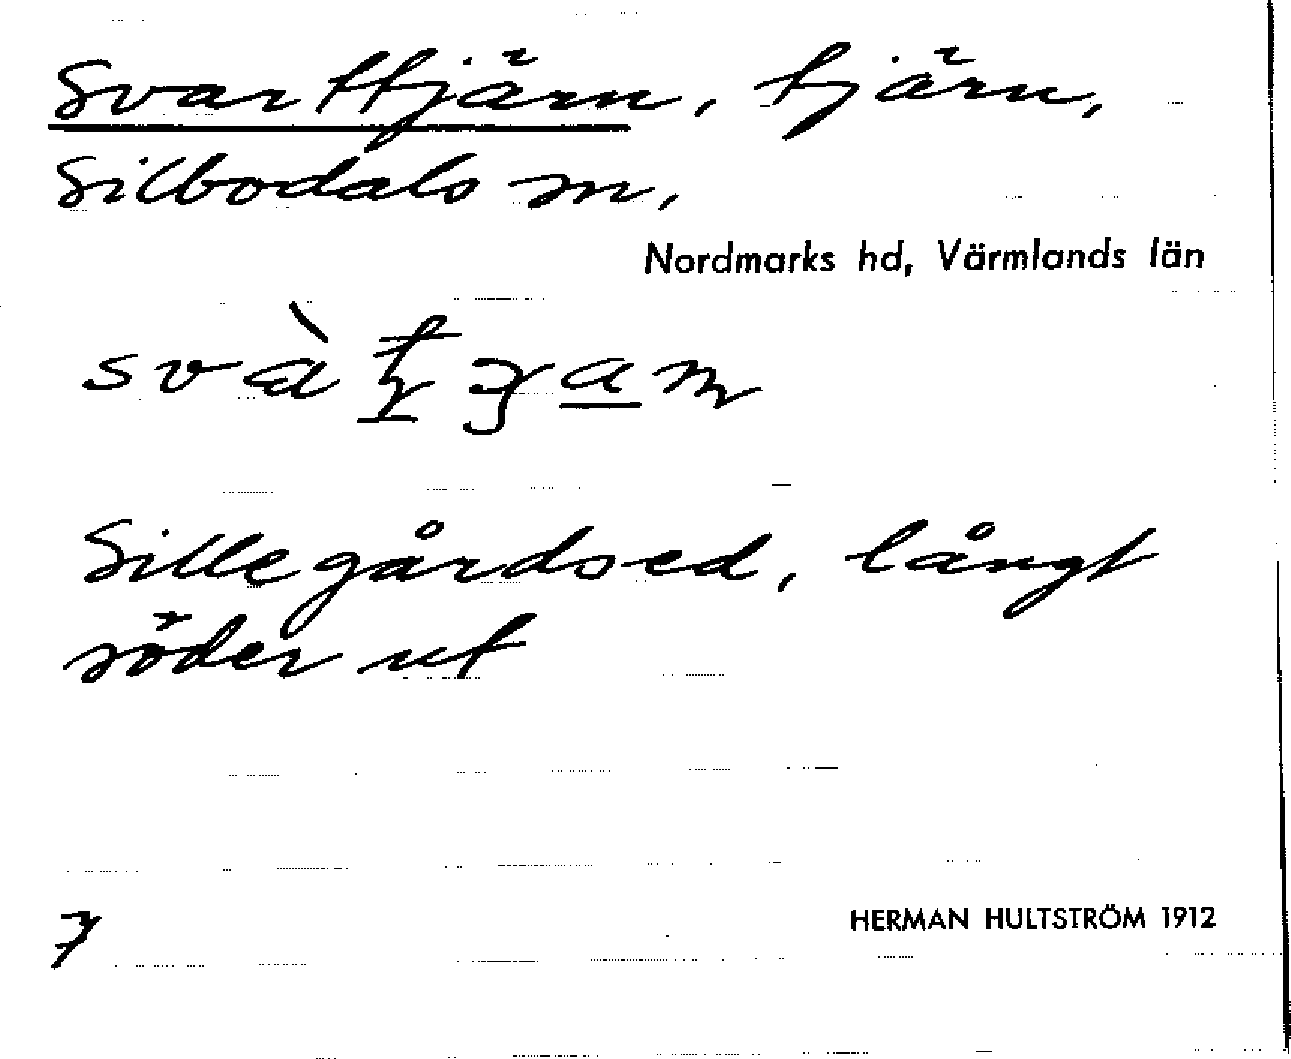 Svarttjärn, tjärn,
Silbodals sn,
Nordmarks hd, Värmlands län
Sillegårdsed, långt
söder ut
7
HERMAN HULTSTRÖM 1912